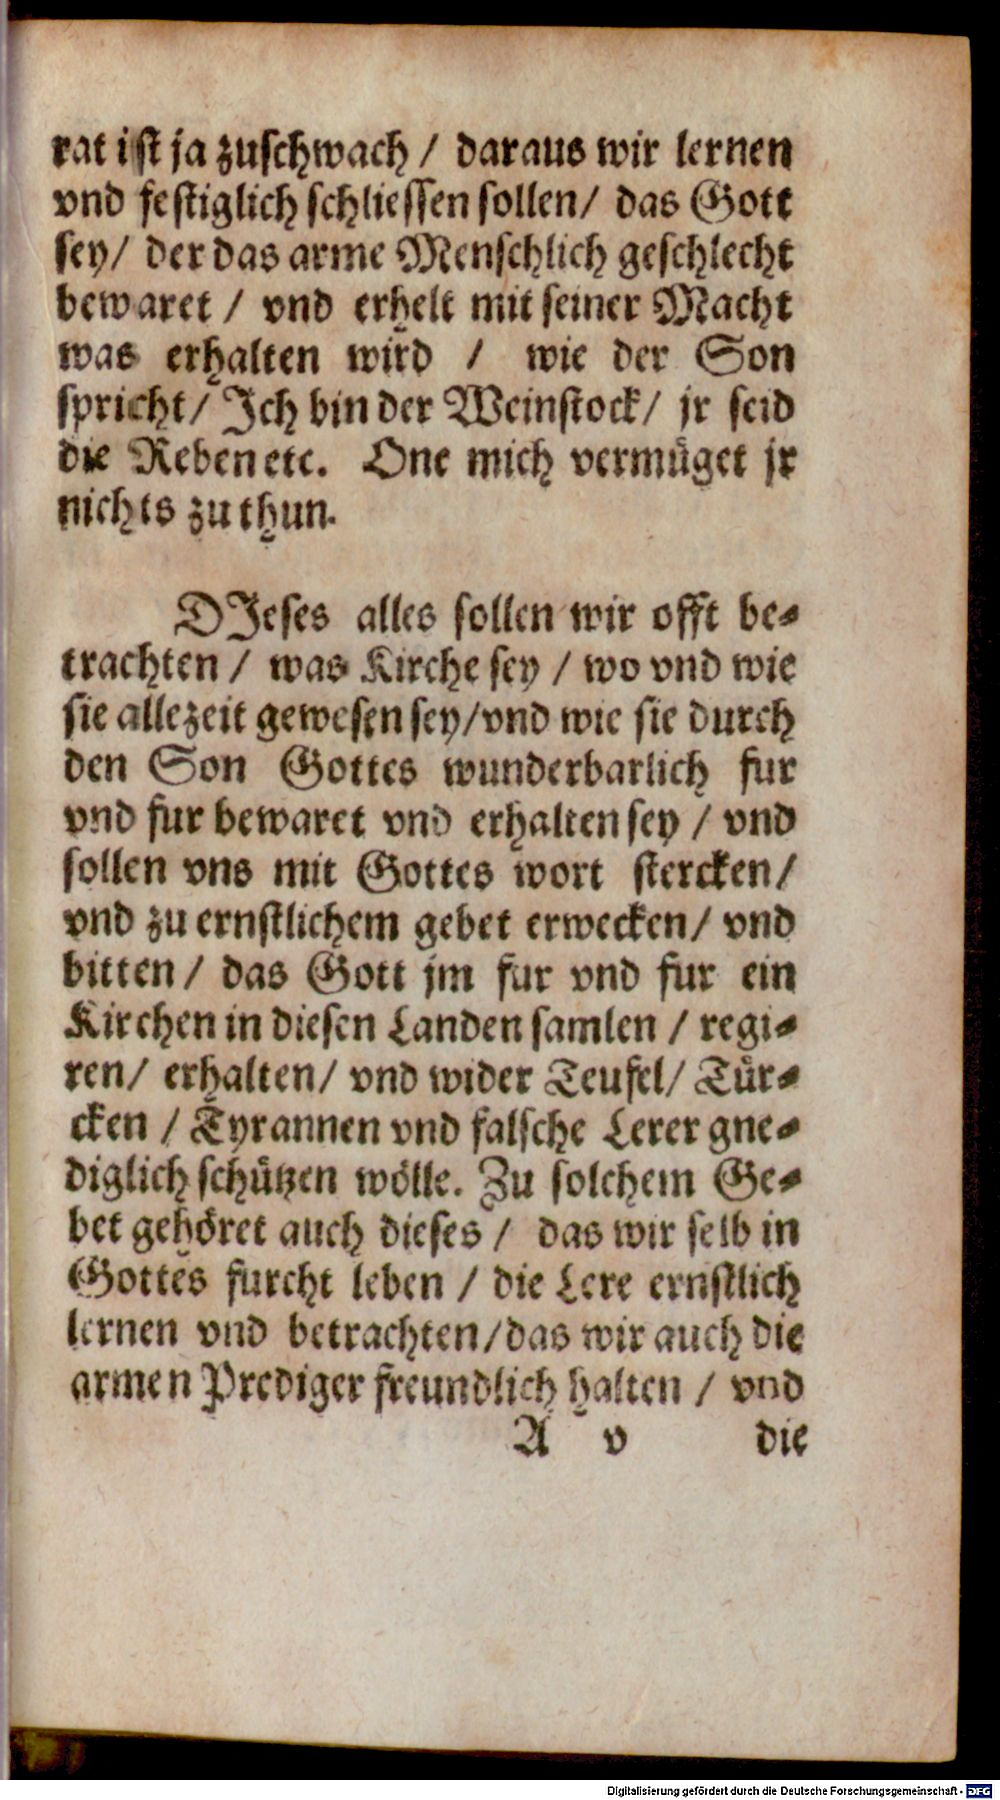 rat ist ja zuschwach / daraus wir lernen
vnd festiglich schliessen sollen / das Gott
sey / der das arme Menschlich geschlecht
bewaret / vnd erhelt mit seiner Macht
was erhalten wird / wie der Son
spricht / Ich bin der Weinstock / jr seid
die Reben etc. One mich vermüget jr
nichts zu thun.
DIeses alles sollen wir offt be-
trachten / was Kirche sey / wo vnd wie
sie allezeit gewesen sey / vnd wie sie durch
den Son Gottes wunderbarlich fur
vnd fur bewaret vnd erhalten sey / vnd
sollen vns mit Gottes wort stercken /
vnd zu ernstlichem gebet erwecken / vnd
bitten / das Gott jm fur vnd fur ein
Kirchen in diesen Landen samlen / regi-
ren / erhalten / vnd wider Teufel / Tür-
cken / Tyrannen vnd falsche Lerer gne-
diglich schützen wölle. Zu solchem Ge-
bet gehöret auch dieses / das wir selb in
Gottes furcht leben / die Lere ernstlich
lernen vnd betrachten / das wir auch die
armen Prediger freundlich halten / vnd
A v die
Digitalisierung gefördert durch die Deutsche Forschungsgemeinschaft - DFG